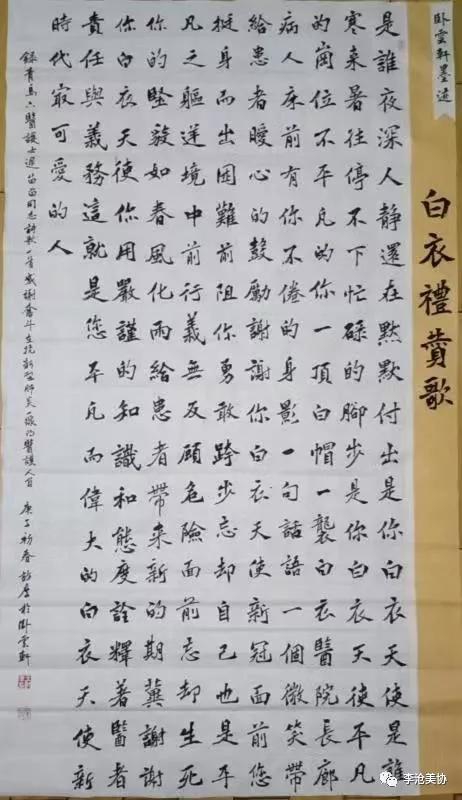 卧雲軒墨迹
白衣禮賛歌
是誰夜深人静還在默默付出是你白衣天使是誰
寒来暑往停不下忙碌的脚步是你白衣天使平凡
的崗位不平凡的你一頂白帽一襲白衣醫院長廊
病人床前有你不倦的身影一句話語一個微笑帶
給患者曖心的鼓勵謝謝你白衣天使新冠面前您
挺身而出困難前阻你勇敢跨步忘却自己也是平
凡之軀逆境中前行義無反顧危險面前忘却生死
你的堅毅如春風化雨給患者帶来新的期冀謝謝
你白衣天使你用嚴謹的知識和態度詮釋著醫者
責任與義務這就是您平凡而偉大的白衣天使新
時代最可愛的人
録青島六醫護士遲苗苗同志詩歌一首感謝奮斗在抗新型肺炎一線的醫護人員 庚子初春 於卧雲軒
李沧美协